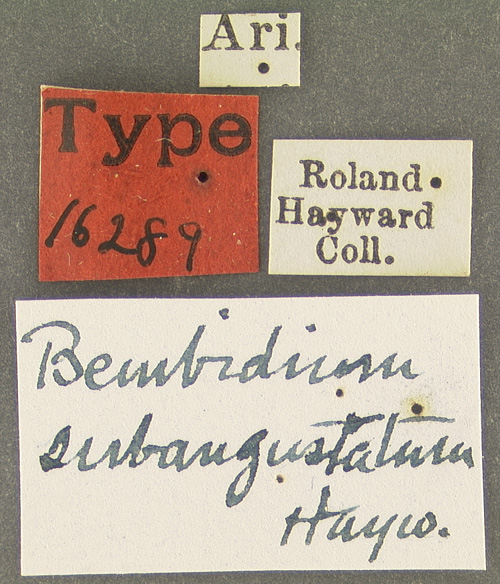 Ari.
Type
16289
Roland
Hayward
Coll.
Bembidium
subangustatum
Hayw.